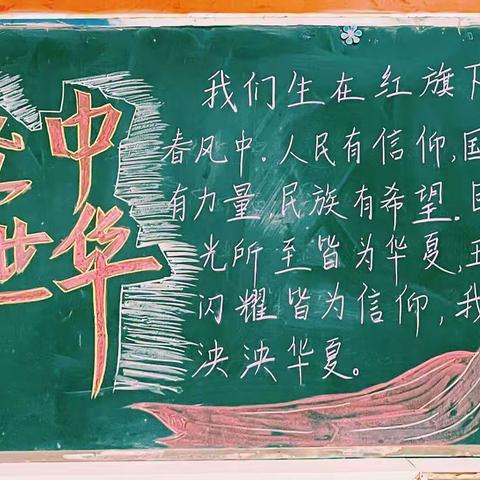 中华
世
我们生在红旗下
春风中。人民有信仰,国
有力量,民族有希望。目
光所至皆为华夏,五
闪耀皆为信仰,我
泱泱华夏。